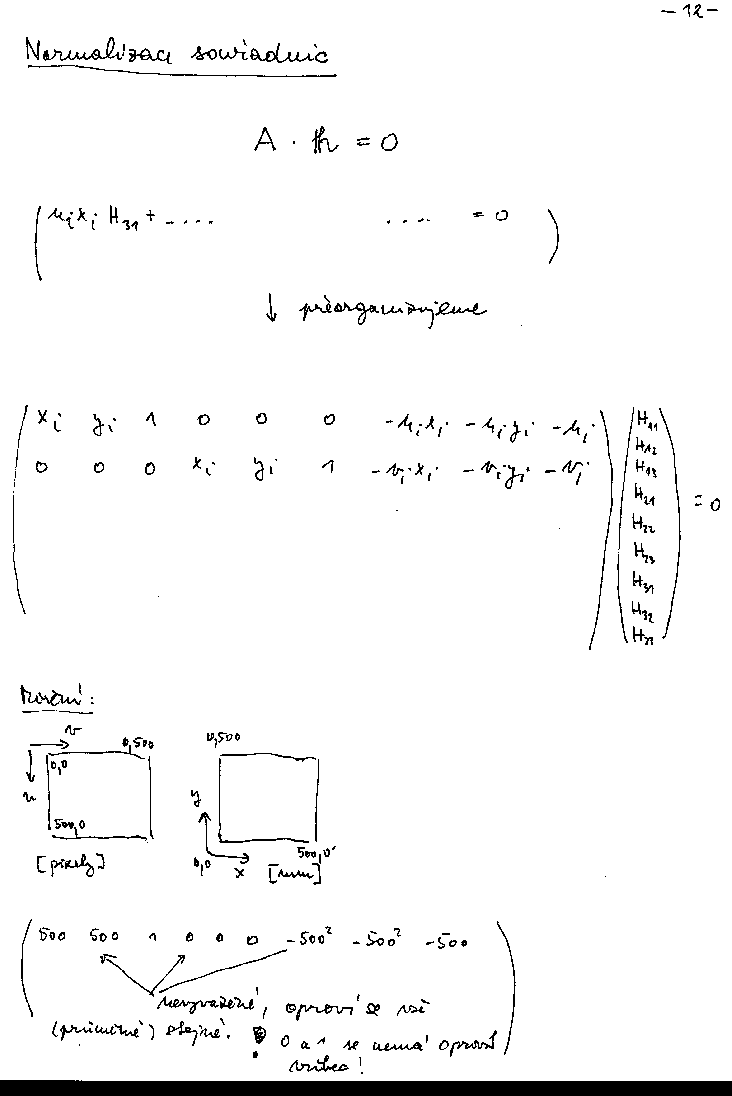 - 12 -
Normalizace souřadnic
A · h = 0
u_i x_i H_31 + ..... .... = 0
↓ přeorganizujeme
x_i y_i 1 0 0 0 -u_i x_i -u_i y_i -u_i
0 0 0 x_i y_i 1 -v_i x_i -v_i y_i -v_i
H_11
H_12
H_13
H_21
H_22
H_23
H_31
H_32
H_33
= 0
v
0,0 0,500
u
500,0
[pixely]
0,500
y
0,0 x 500,0
[mm]
500 500 1 0 0 0 -500² -500² -500
nevyvážené, opraví se vše
(průměrně) stejně. 0 a 1 se nemá opravit
vůbec!